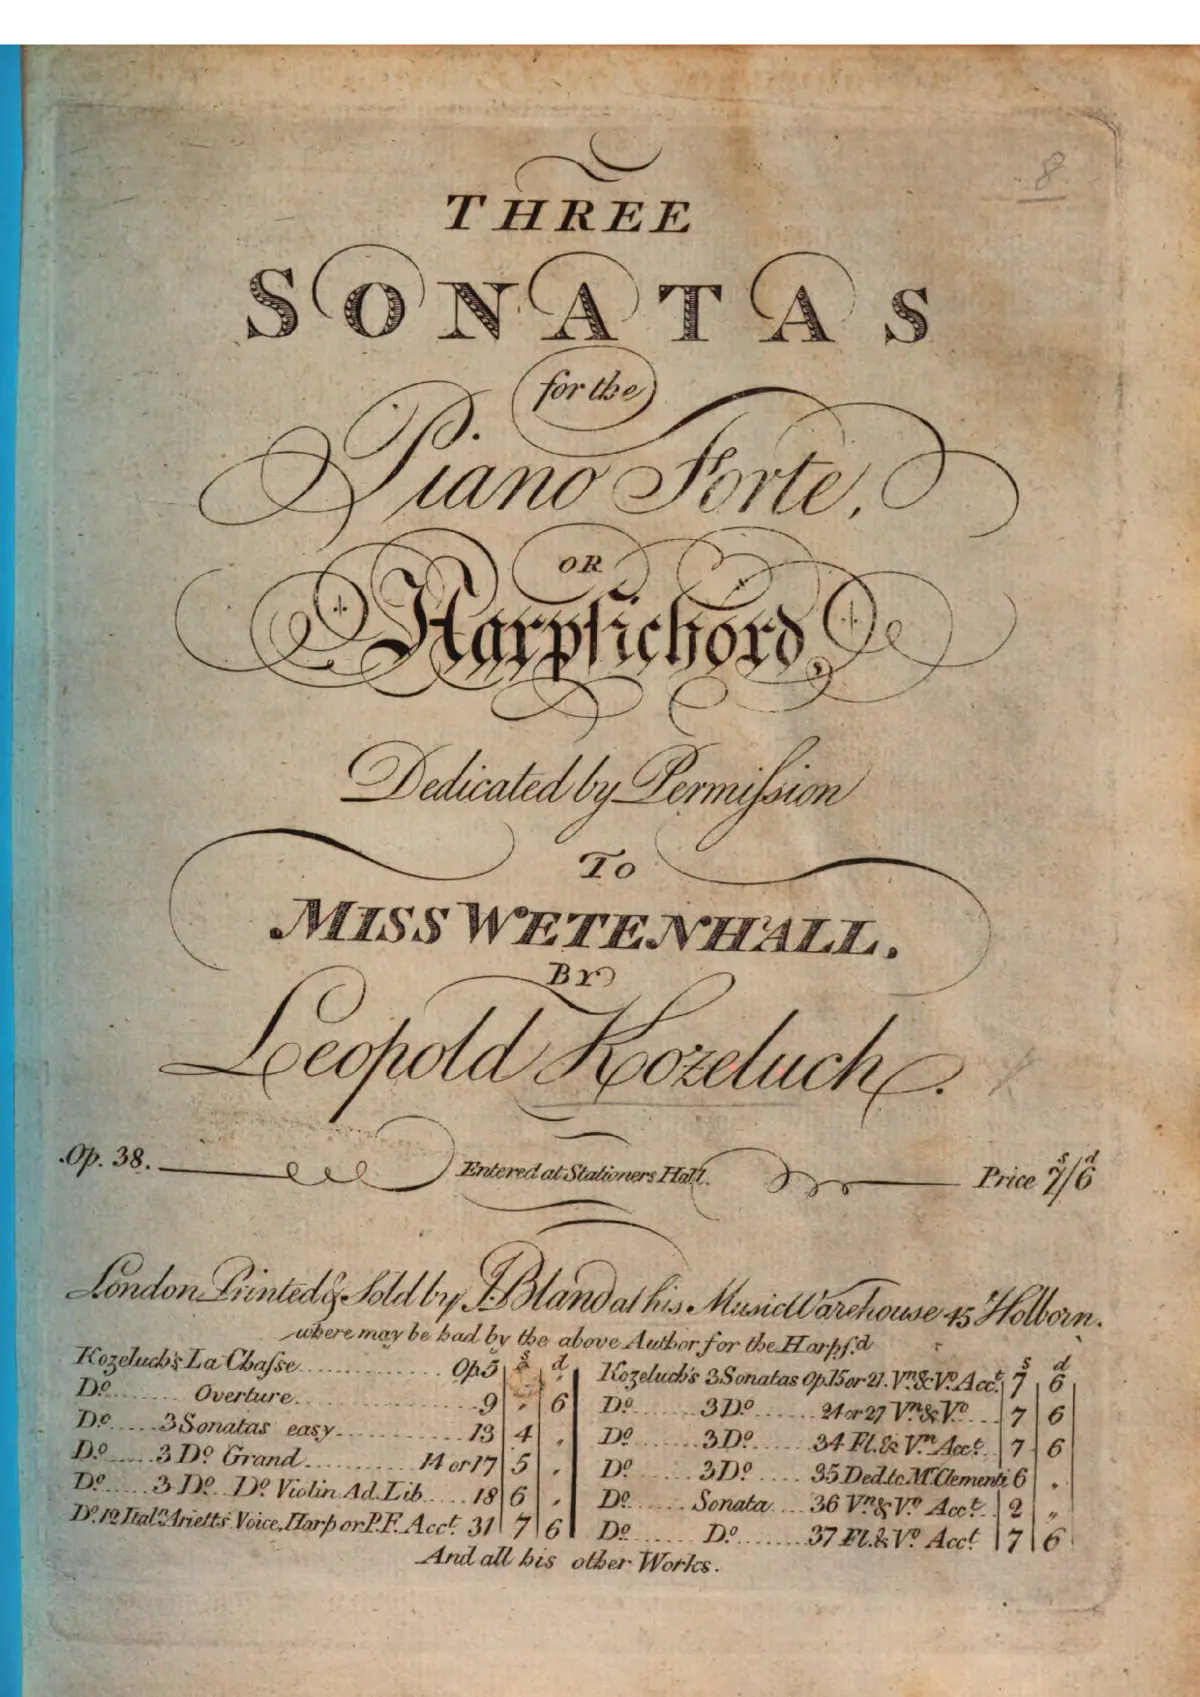 8
THREE
SONATAS
for the
Piano Forte,
OR
Harpſichord,
Dedicated by Permiſsion
To
MISS WETENHALL.
BY
Leopold Kozeluch.
Op. 38. Entered at Stationers Hall. Price 7s/6d
London Printed & Sold by J. Bland at his Music Warehouse 45 Holborn.
where may be had by the above Author for the Harpſ.d
s d
Kozeluch's La Chaſse Op 5
Do. Overture 9 , 6
Do. 3 Sonatas easy 13 4 ,
Do. 3 Do. Grand 14 or 17 5 ,
Do. 3 Do. Do. Violin Ad. Lib 18 6 ,
Do. 12 Ital.n Arietts Voice, Harp or P.F. Acct. 31 7 6
s d
Kozeluch's 3 Sonatas Op. 15 or 21. Vn. & Vo. Acct. 7 6
Do. 3 Do. 24 or 27 Vn. & Vo. 7 6
Do. 3 Do. 34 Fl. & Vn. Acct. 7 6
Do. 3 Do. 35 Ded. to Mr. Clementi 6 ,
Do. Sonata 36 Vn. & Vo. Acct. 2 „
Do. Do. 37 Fl. & Vo. Acct. 7 6
And all his other Works.